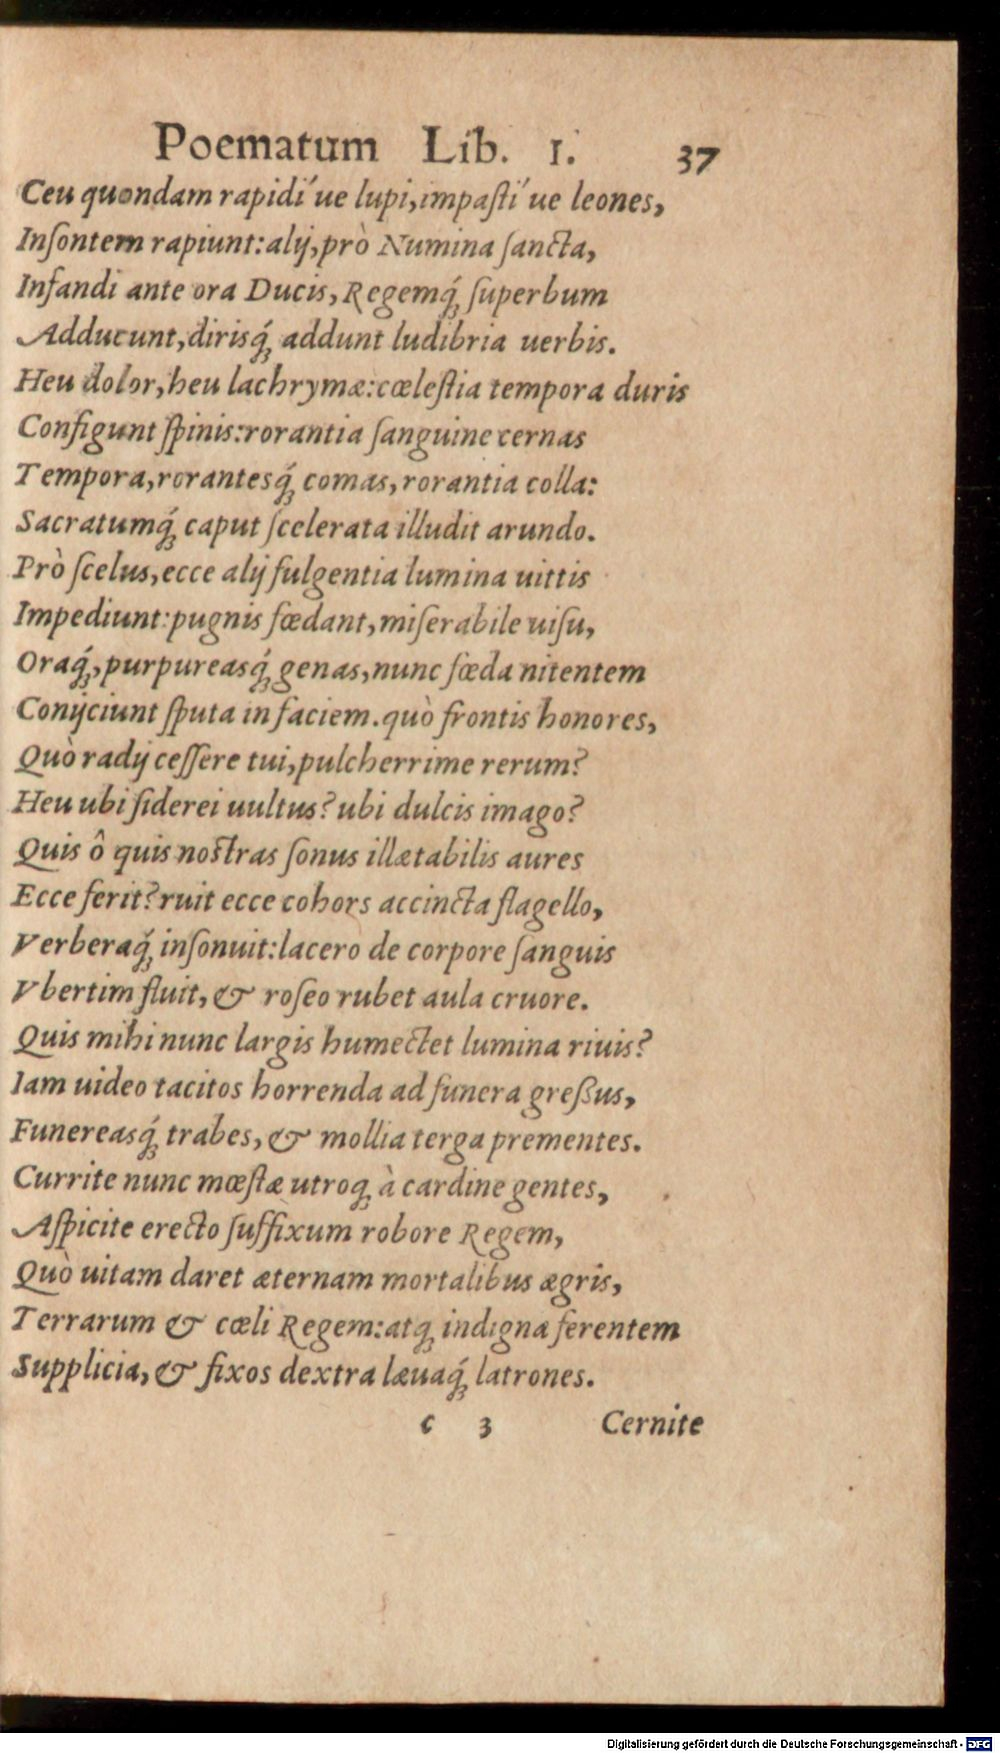 Poematum Lib. 1. 37
Ceu quondam rapidi´ue lupi,impaſti´ue leones,
Inſontem rapiunt:alij,prò Numina ſancta,
Infandi ante ora Ducis, Regemq́; ſuperbum
Adducunt,dirisq́; addunt ludibria uerbis.
Heu dolor,heu lachrymæ:cœleſtia tempora duris
Configunt ſpinis:rorantia ſanguine cernas
Tempora,rorantesq́; comas,rorantia colla:
Sacratumq́; caput ſcelerata illudit arundo.
Prò ſcelus,ecce alij fulgentia lumina uittis
Impediunt:pugnis fœdant,miſerabile uiſu,
Oraq́;,purpureasq́; genas,nunc fœda nitentem
Conijciunt ſputa in faciem.quò frontis honores,
Quò radij ceſſere tui,pulcherrime rerum?
Heu ubi ſiderei uultus? ubi dulcis imago?
Quis ô quis nostras ſonus illætabilis aures
Ecce ferit? ruit ecce cohors accincta flagello,
Verberaq́; inſonuit:lacero de corpore ſanguis
Vbertim fluit, & roſeo rubet aula cruore.
Quis mihi nunc largis humectet lumina riuis?
Iam uideo tacitos horrenda ad funera greßus,
Funereasq́; trabes, & mollia terga prementes.
Currite nunc mœſtæ utroq; à cardine gentes,
Aſpicite erecto ſuffixum robore Regem,
Quò uitam daret æternam mortalibus ægris,
Terrarum & cœli Regem:atq; indigna ferentem
Supplicia, & fixos dextra læuaq́; latrones.
c 3 Cernite
Digitalisierung gefördert durch die Deutsche Forschungsgemeinschaft - DFG